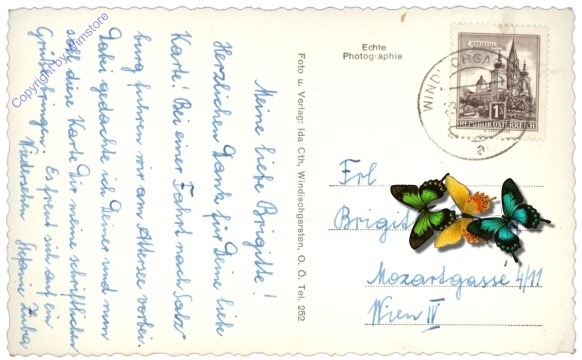 Meine liebe Brigitte!
Herzlichen Dank für Deine liebe
Karte! Bei einer Fahrt nach Salz-
burg fuhren wir am Attersee vorbei.
Dabei gedachte ich Deiner und nun
soll diese Karte Dir meine schriftlichen
Grüße bringen. Es freut sich auf ein
Wiedersehn Stefanie
Foto u. Verlag: Ida Cth, Windischgarsten, O. Ö. Tel. 252
Echte
Photographie
WINDISCHGA
a
REPUBLIK ÖSTERREICH
1S
Frl
Brigit
Mozartgasse 4/11
Wien IV
Copyright by wimstore